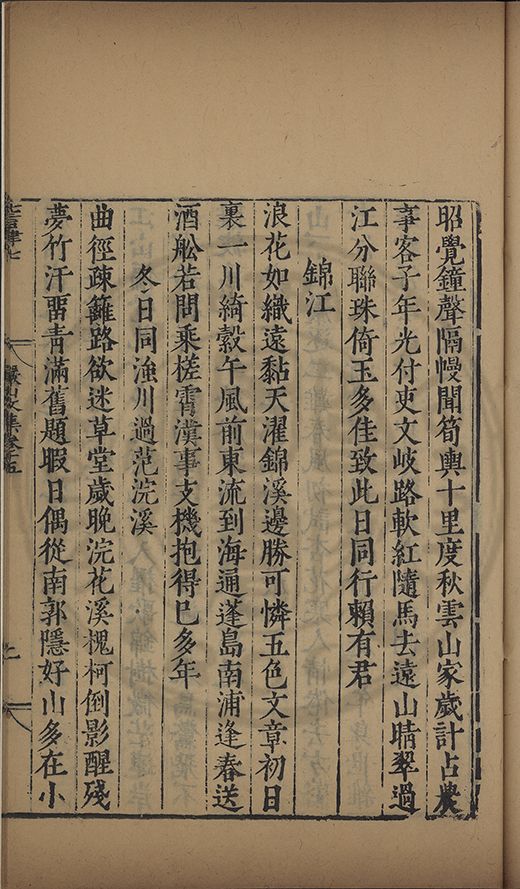 昭覺鐘聲隔幔聞筍輿十里度秋雲山家歲計占農
事客子年光付吏文岐路軟紅隨馬去遠山晴翠過
江分聯珠倚玉多佳致此日同行賴有君
錦江
浪花如織遠黏天濯錦溪邊勝可憐五色文章初日
裏一川綺縠午風前東流到海通蓬島南浦逢春送
酒舩若問乘槎霄漢事支機抱得已多年
冬日同漁川過范浣溪
曲徑疎籬路欲迷草堂歲晚浣花溪槐柯倒影醒殘
夢竹汗畱青滿舊題暇日偶從南郭隱好山多在小
七言律七